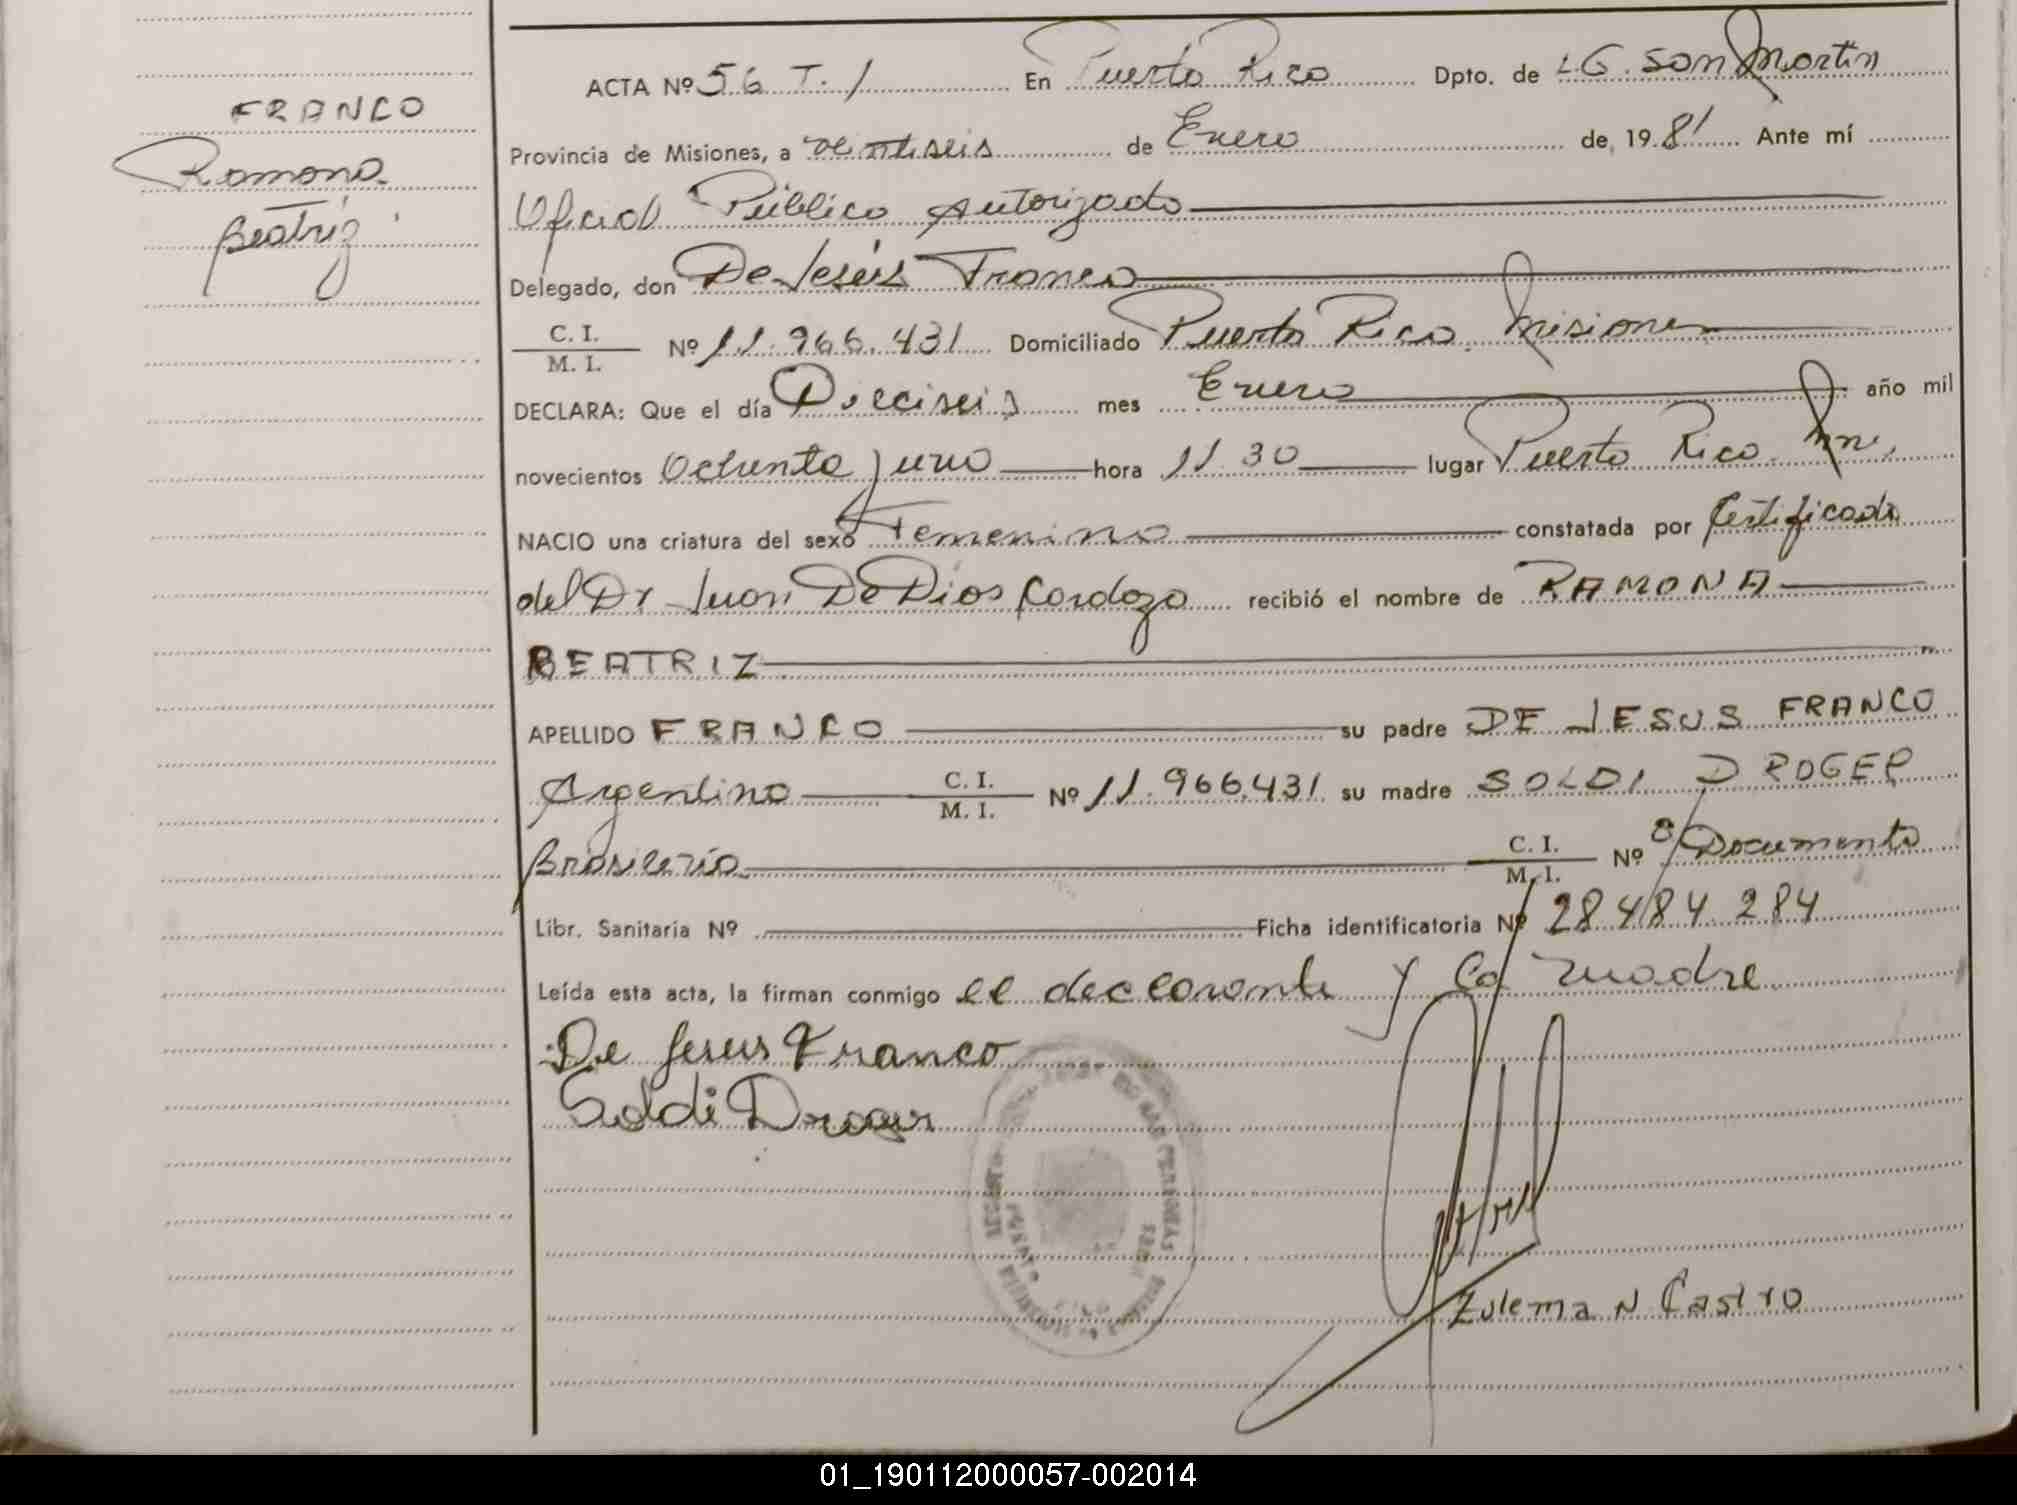 FRANCO
Ramona
Beatriz
ACTA Nº 56 T. 1 En Puerto Rico Dpto. de LG. San Martín
Provincia de Misiones, a veintiseis de Enero de 1981 Ante mí
Oficial Público Autorizado
Delegado, don De Jesús Franco
C. I. / M. I. Nº 11.966.431 Domiciliado Puerto Rico Misiones
DECLARA: Que el día Dieciseis mes Enero año mil
novecientos Ochenta y uno hora 11 30 lugar Puerto Rico Mnes,
NACIO una criatura del sexo Femenino constatada por Certificado
del Dr Juan De Dios Cardozo recibió el nombre de RAMONA
BEATRIZ
APELLIDO FRANCO su padre DE JESUS FRANCO
Argentino C. I. / M. I. Nº 11.966.431 su madre SOLDI DROGER
Brasileria C. I. / M. I. Nº Documento
Libr. Sanitaria Nº Ficha identificatoria Nº 28 484 284
Leída esta acta, la firman conmigo el declarante y la madre
De Jesus Franco
Soldi Droger
Zulema N Castro
01_190112000057-002014